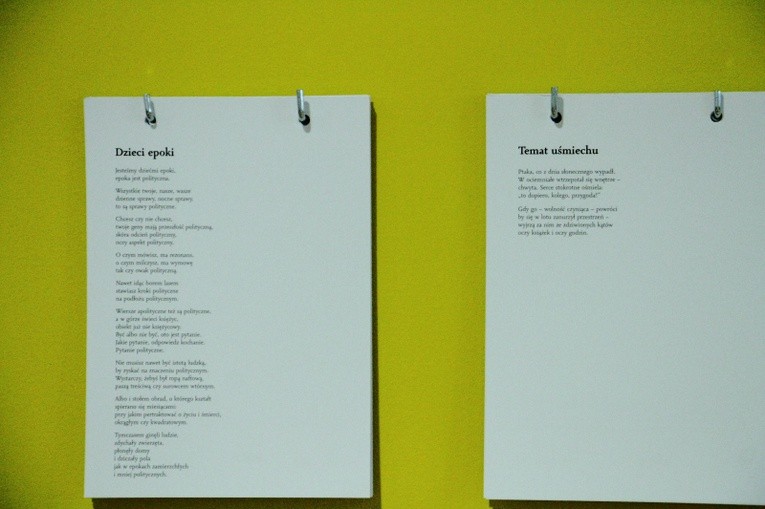 Dzieci epoki
Jesteśmy dziećmi epoki,
epoka jest polityczna.
Wszystkie twoje, nasze, wasze
dzienne sprawy, nocne sprawy,
to są sprawy polityczne.
Chcesz czy nie chcesz,
twoje geny mają przeszłość polityczną,
skóra odcień polityczny,
oczy aspekt polityczny.
O czym mówisz, ma rezonans,
o czym milczysz, ma wymowę
tak czy owak polityczną.
Nawet idąc borem lasem
stawiasz kroki polityczne
na podłożu politycznym.
Wiersze apolityczne też są polityczne,
a w górze świeci księżyc,
obiekt już nie księżycowy.
Być albo nie być, oto jest pytanie.
Jakie pytanie, odpowiedz kochanie.
Pytanie polityczne.
Nie musisz nawet być istotą ludzką,
by zyskać na znaczeniu politycznym.
Wystarczy, żebyś był ropą naftową,
paszą treściwą czy surowcem wtórnym.
Albo i stołem obrad, o którego kształt
spierano się miesiącami:
przy jakim pertraktować o życiu i śmierci,
okrągłym czy kwadratowym.
Tymczasem ginęli ludzie,
zdychały zwierzęta,
płonęły domy
i dziczały pola
jak w epokach zamierzchłych
i mniej politycznych.
Temat uśmiechu
Ptaka, co z dnia słonecznego wypadł,
W ociemniałe wtrzepotał się wnętrze –
chwyta. Serce stokrotne ośmiela:
„to dopiero, kolego, przygoda!”
Gdy go – wolność czyniąca – powróci
by się w lotu zanurzył przestrzeń –
wyjrzą za nim ze zdziwionych kątów
oczy książek i oczy godzin.